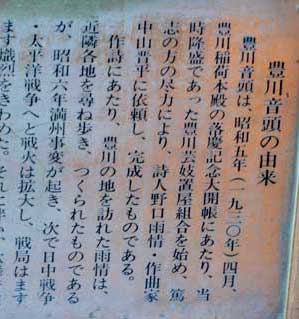 豊川音頭の由来
豊川音頭は、昭和五年（一九三〇年）四月、
豊川稲荷本殿の落慶記念大開帳にあたり、当
時隆盛であった豊川芸妓置屋組合を始め、篤
志の方の尽力により、詩人野口雨情・作曲家
中山晋平に依頼し、完成したものである。
作詩にあたり、豊川の地を訪れた雨情は、
近隣各地を尋ね歩き、つくられたものである
が、昭和六年満州事変が起き、次で日中戦争
・太平洋戦争へと戦火は拡大し、戦局はます
ます熾烈をきわめた。それに伴い